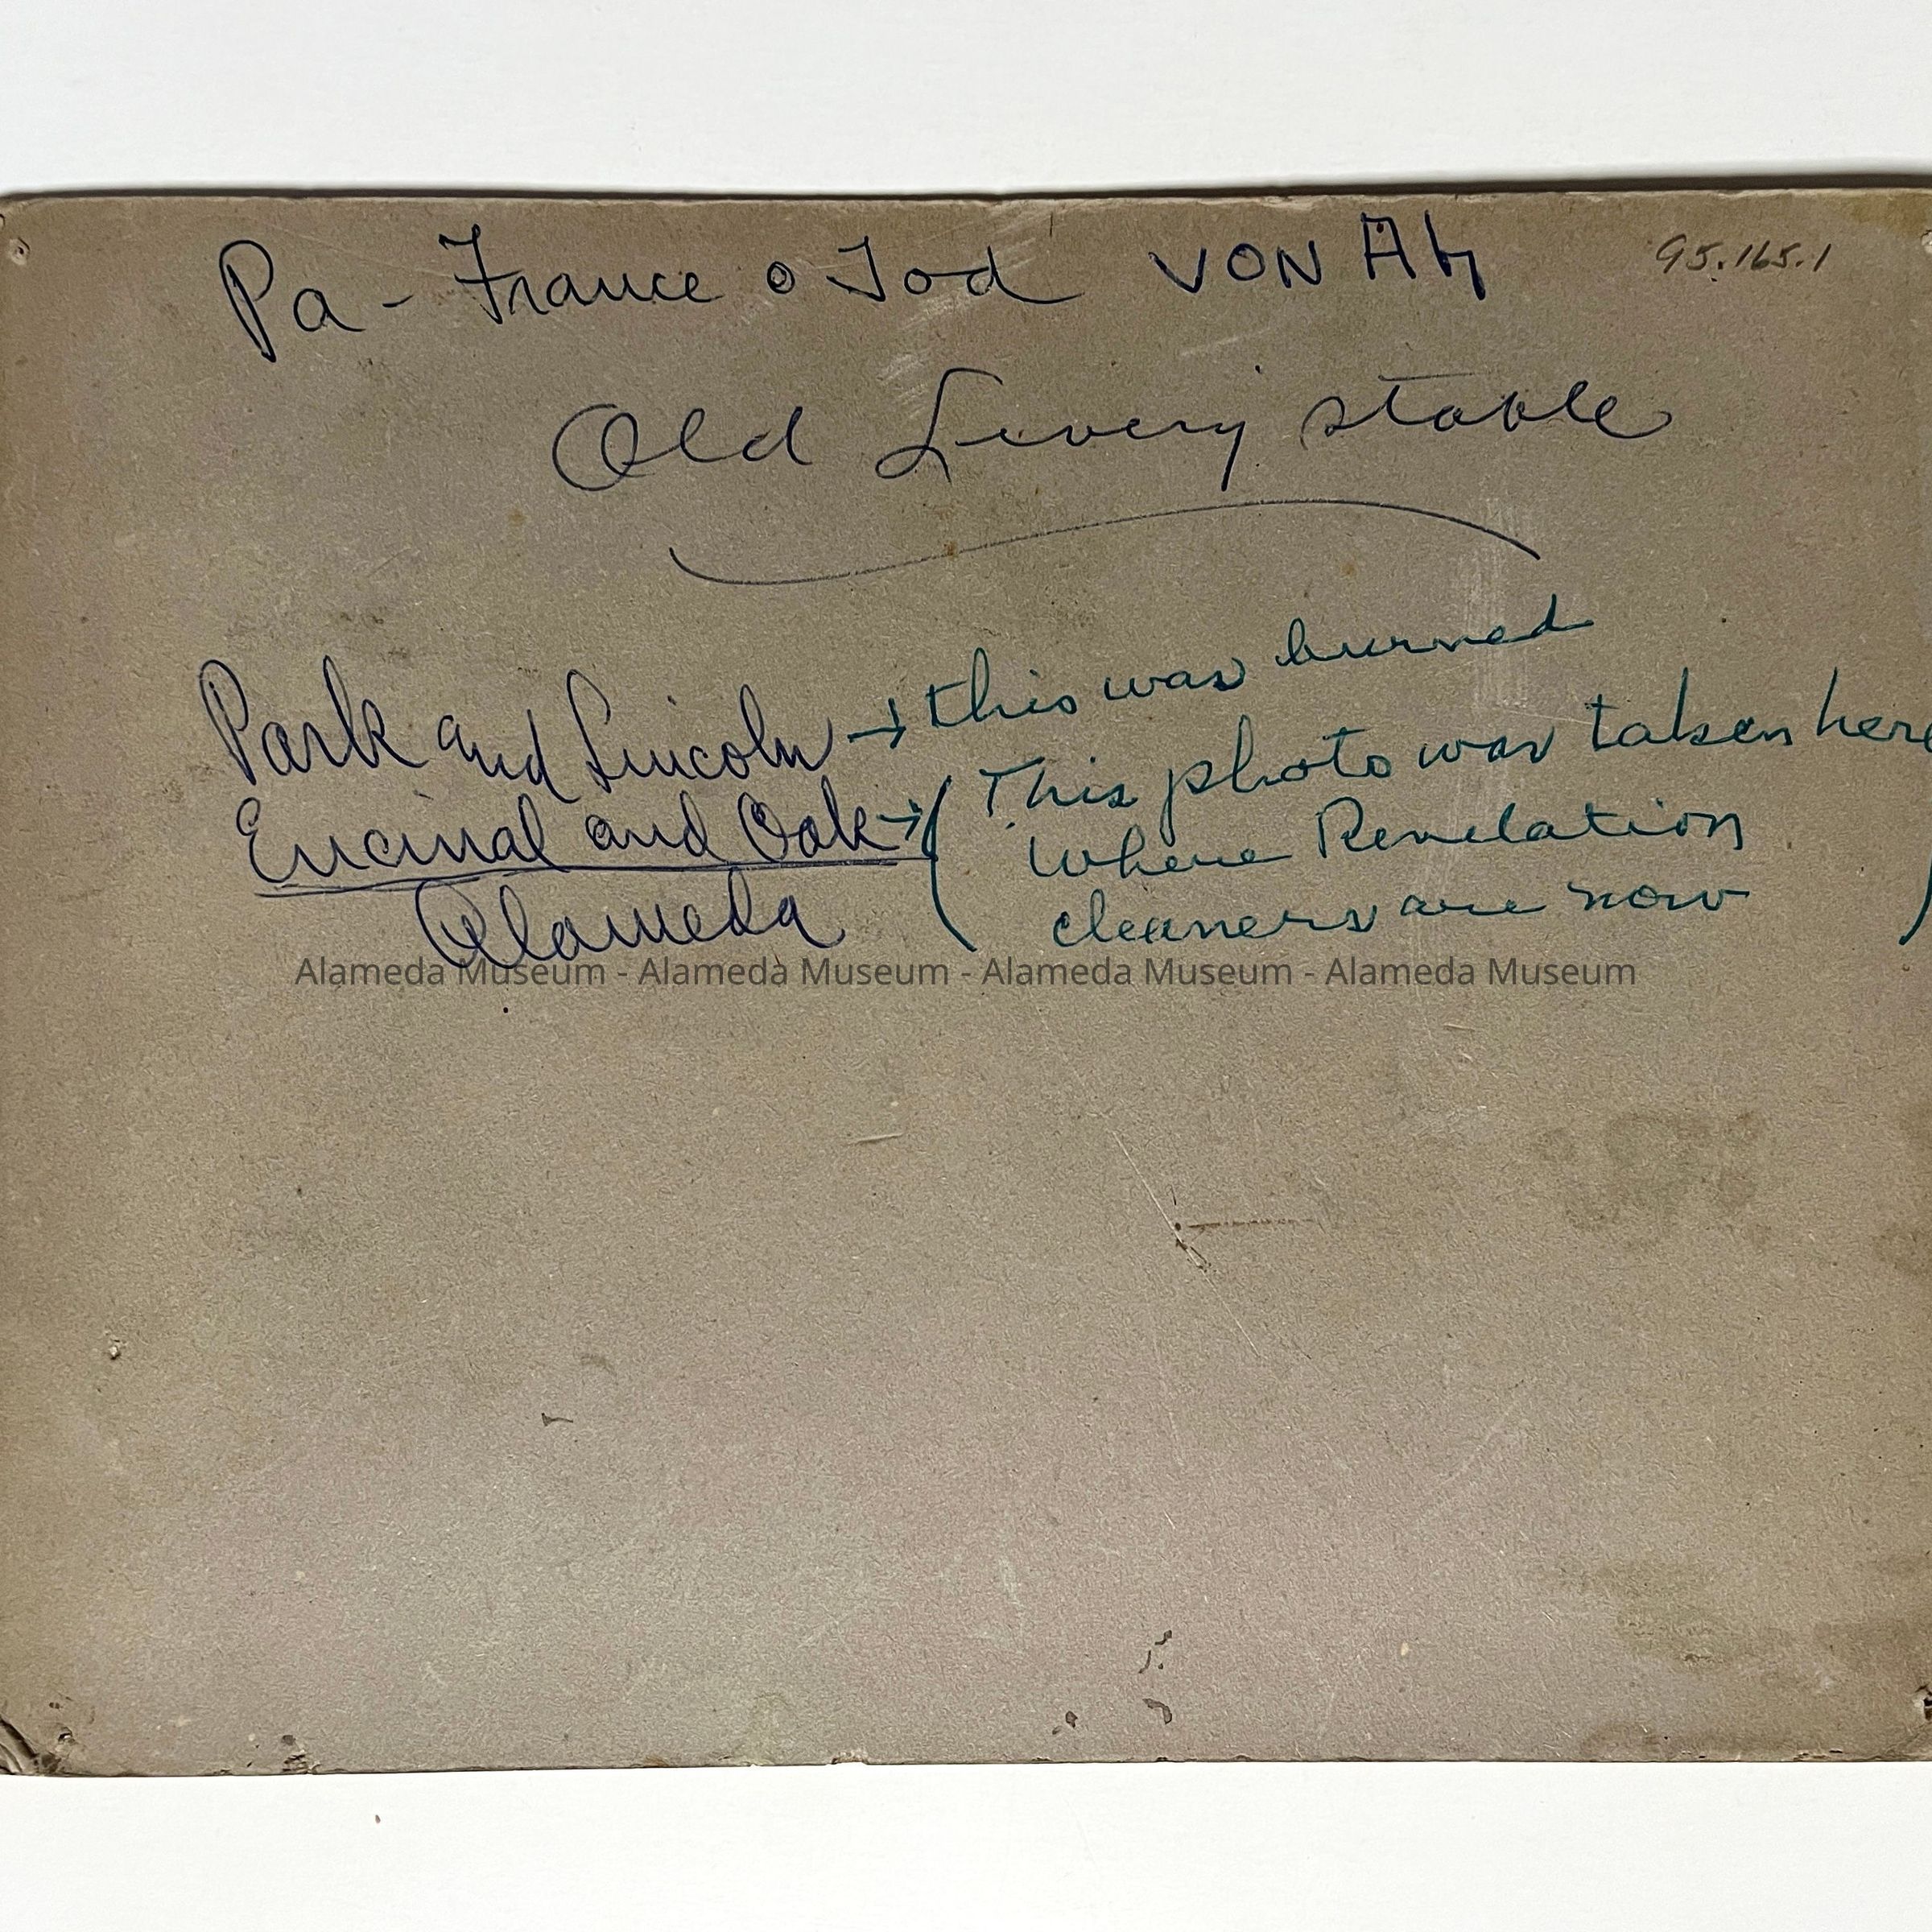 Pa - France o Tod VON Ah
95.165.1
Old Livery stable
Park and Lincoln → this was burned
Encinal and Oak → ( This photo was taken here
Where Revelation
cleaners are now )
Alameda
Alameda Museum - Alameda Museum - Alameda Museum - Alameda Museum